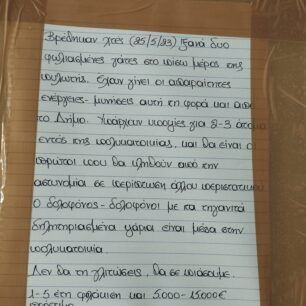 Βρέθηκαν χτές (25/5/23) ξανά δυο
φολιασμένες γάτες στο πίσω μέρος της
πυλωτής. Έχουν γίνει οι απαραίτητες
ενέργειες - μηνύσεις αυτή τη φορά και από
το Δήμο. Υπάρχουν υποψίες για 2-3 άτομα
εντός της πολυκατοικίας, και θα είναι οι
πρώτοι που θα κληθούν από την
αστυνομία σε περίπτωση άλλου περιστατικού.
Ο δολοφόνος - δολοφόνοι με τα τηγανιτά
δηλητηριασμένα ψάρια είναι μέσα στην
πολυκατοικία.
Δεν θα τη γλιτώσεις, θα σε πιάσουμε.
1-5 έτη φυλάκιση και 5.000-15.000€
πρόστιμο